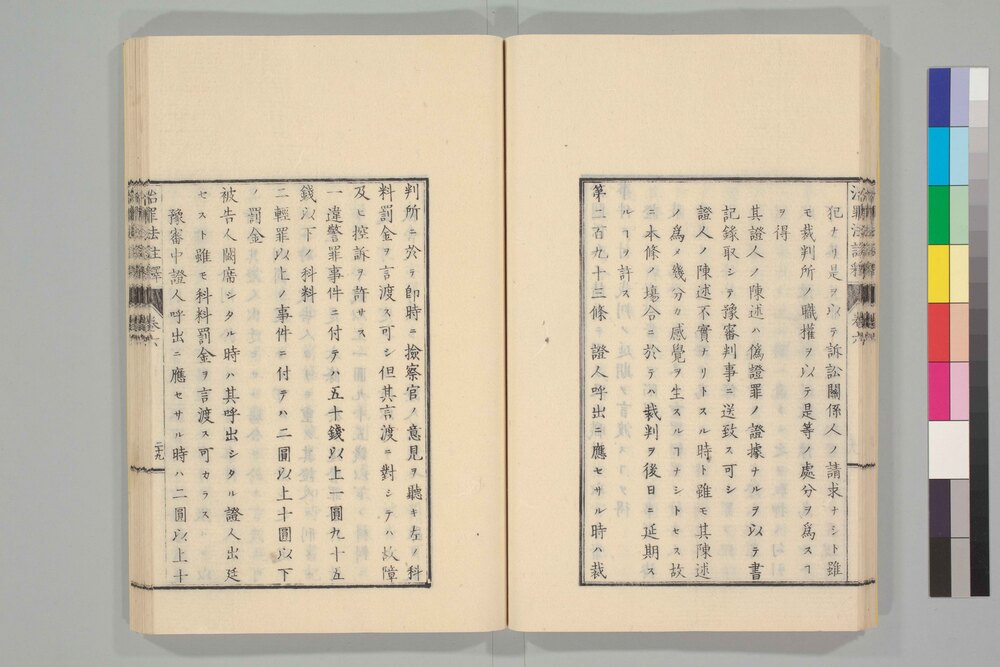 治罪法註釋 卷六
犯ナリ是ヲ以テ訴訟關係人ノ請求ナシト雖
モ裁判所ノ職權ヲ以テ是等ノ處分ヲ爲スヿ
ヲ得
其證人ノ陳述ハ僞證罪ノ證據ナルヲ以テ書
記錄取シテ豫審判事ニ送致ス可シ
證人ノ陳述不實ナリトスル時ト雖モ其陳述
ノ爲メ幾分カ感覺ヲ生スルヿナシトセス故
ニ本條ノ塲合ニ於テハ裁判ヲ後日ニ延期ス
ルヿヲ許ス
第二百九十三條 證人呼出ニ應セサル時ハ裁
判所ニ於テ卽時ニ撿察官ノ意見ヲ聽キ左ノ科
料罰金ヲ言渡ス可シ但其言渡ニ對シテハ故障
及ヒ控訴ヲ許サス
一 違警罪事件ニ付テハ五十錢以上一圓九十五
錢以下ノ科料
二 輕罪以上ノ事件ニ付テハ二圓以上十圓以下
ノ罰金
被告人闕席シタル時ハ其呼出シタル證人出廷
セスト雖モ科料罰金ヲ言渡ス可カラス
豫審中證人呼出ニ應セサル時ハ二圓以上十
治罪法註釋 卷六 二十九